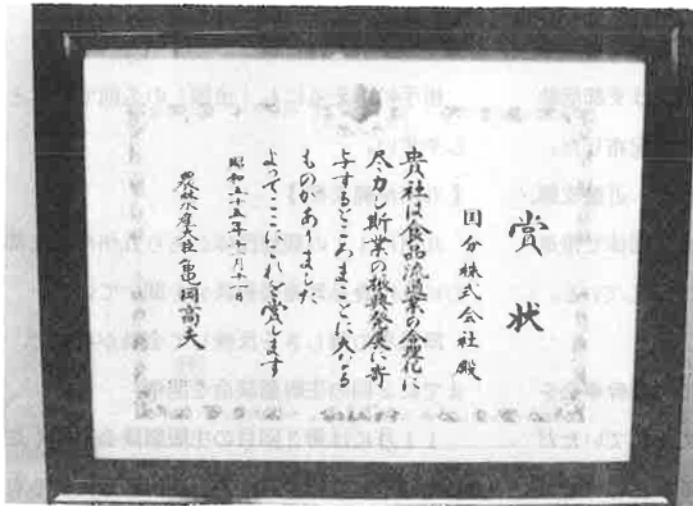 賞状
国分株式会社殿
貴社は食品流通業の合理化に
尽力 斯業の振興発展に寄
与するところまことに大なる
ものがありました
よってここにこれを賞します
農林水産大臣 亀岡高夫